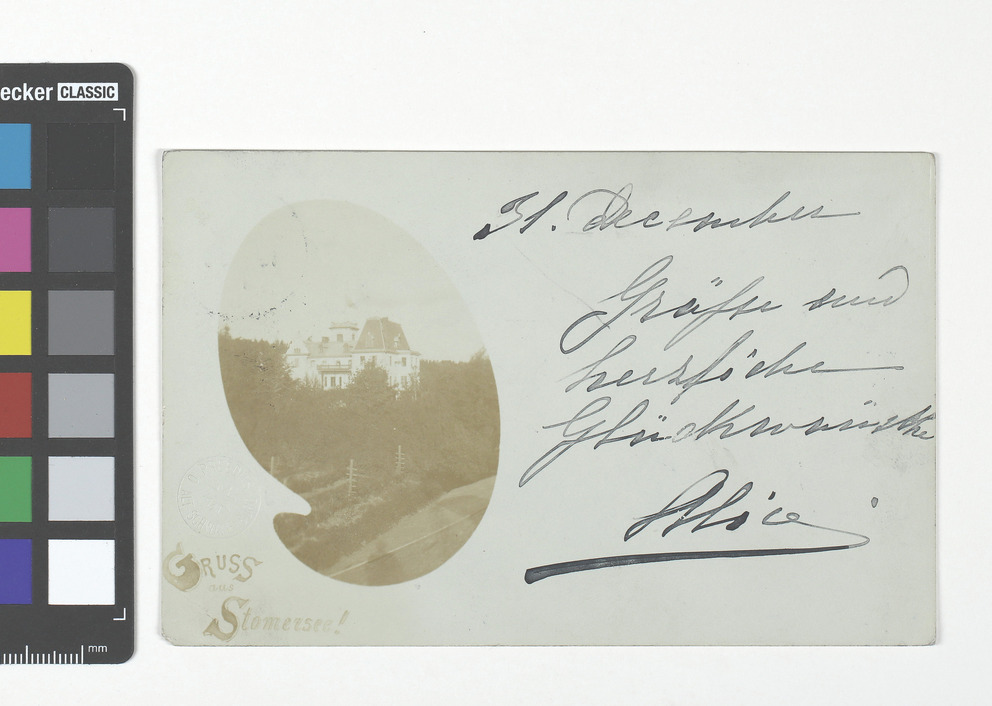 ecker CLASSIC
31. December
Grüße und
herzliche
Glückwünsche
Alice
GRUSS
aus
Stomersee!
mm